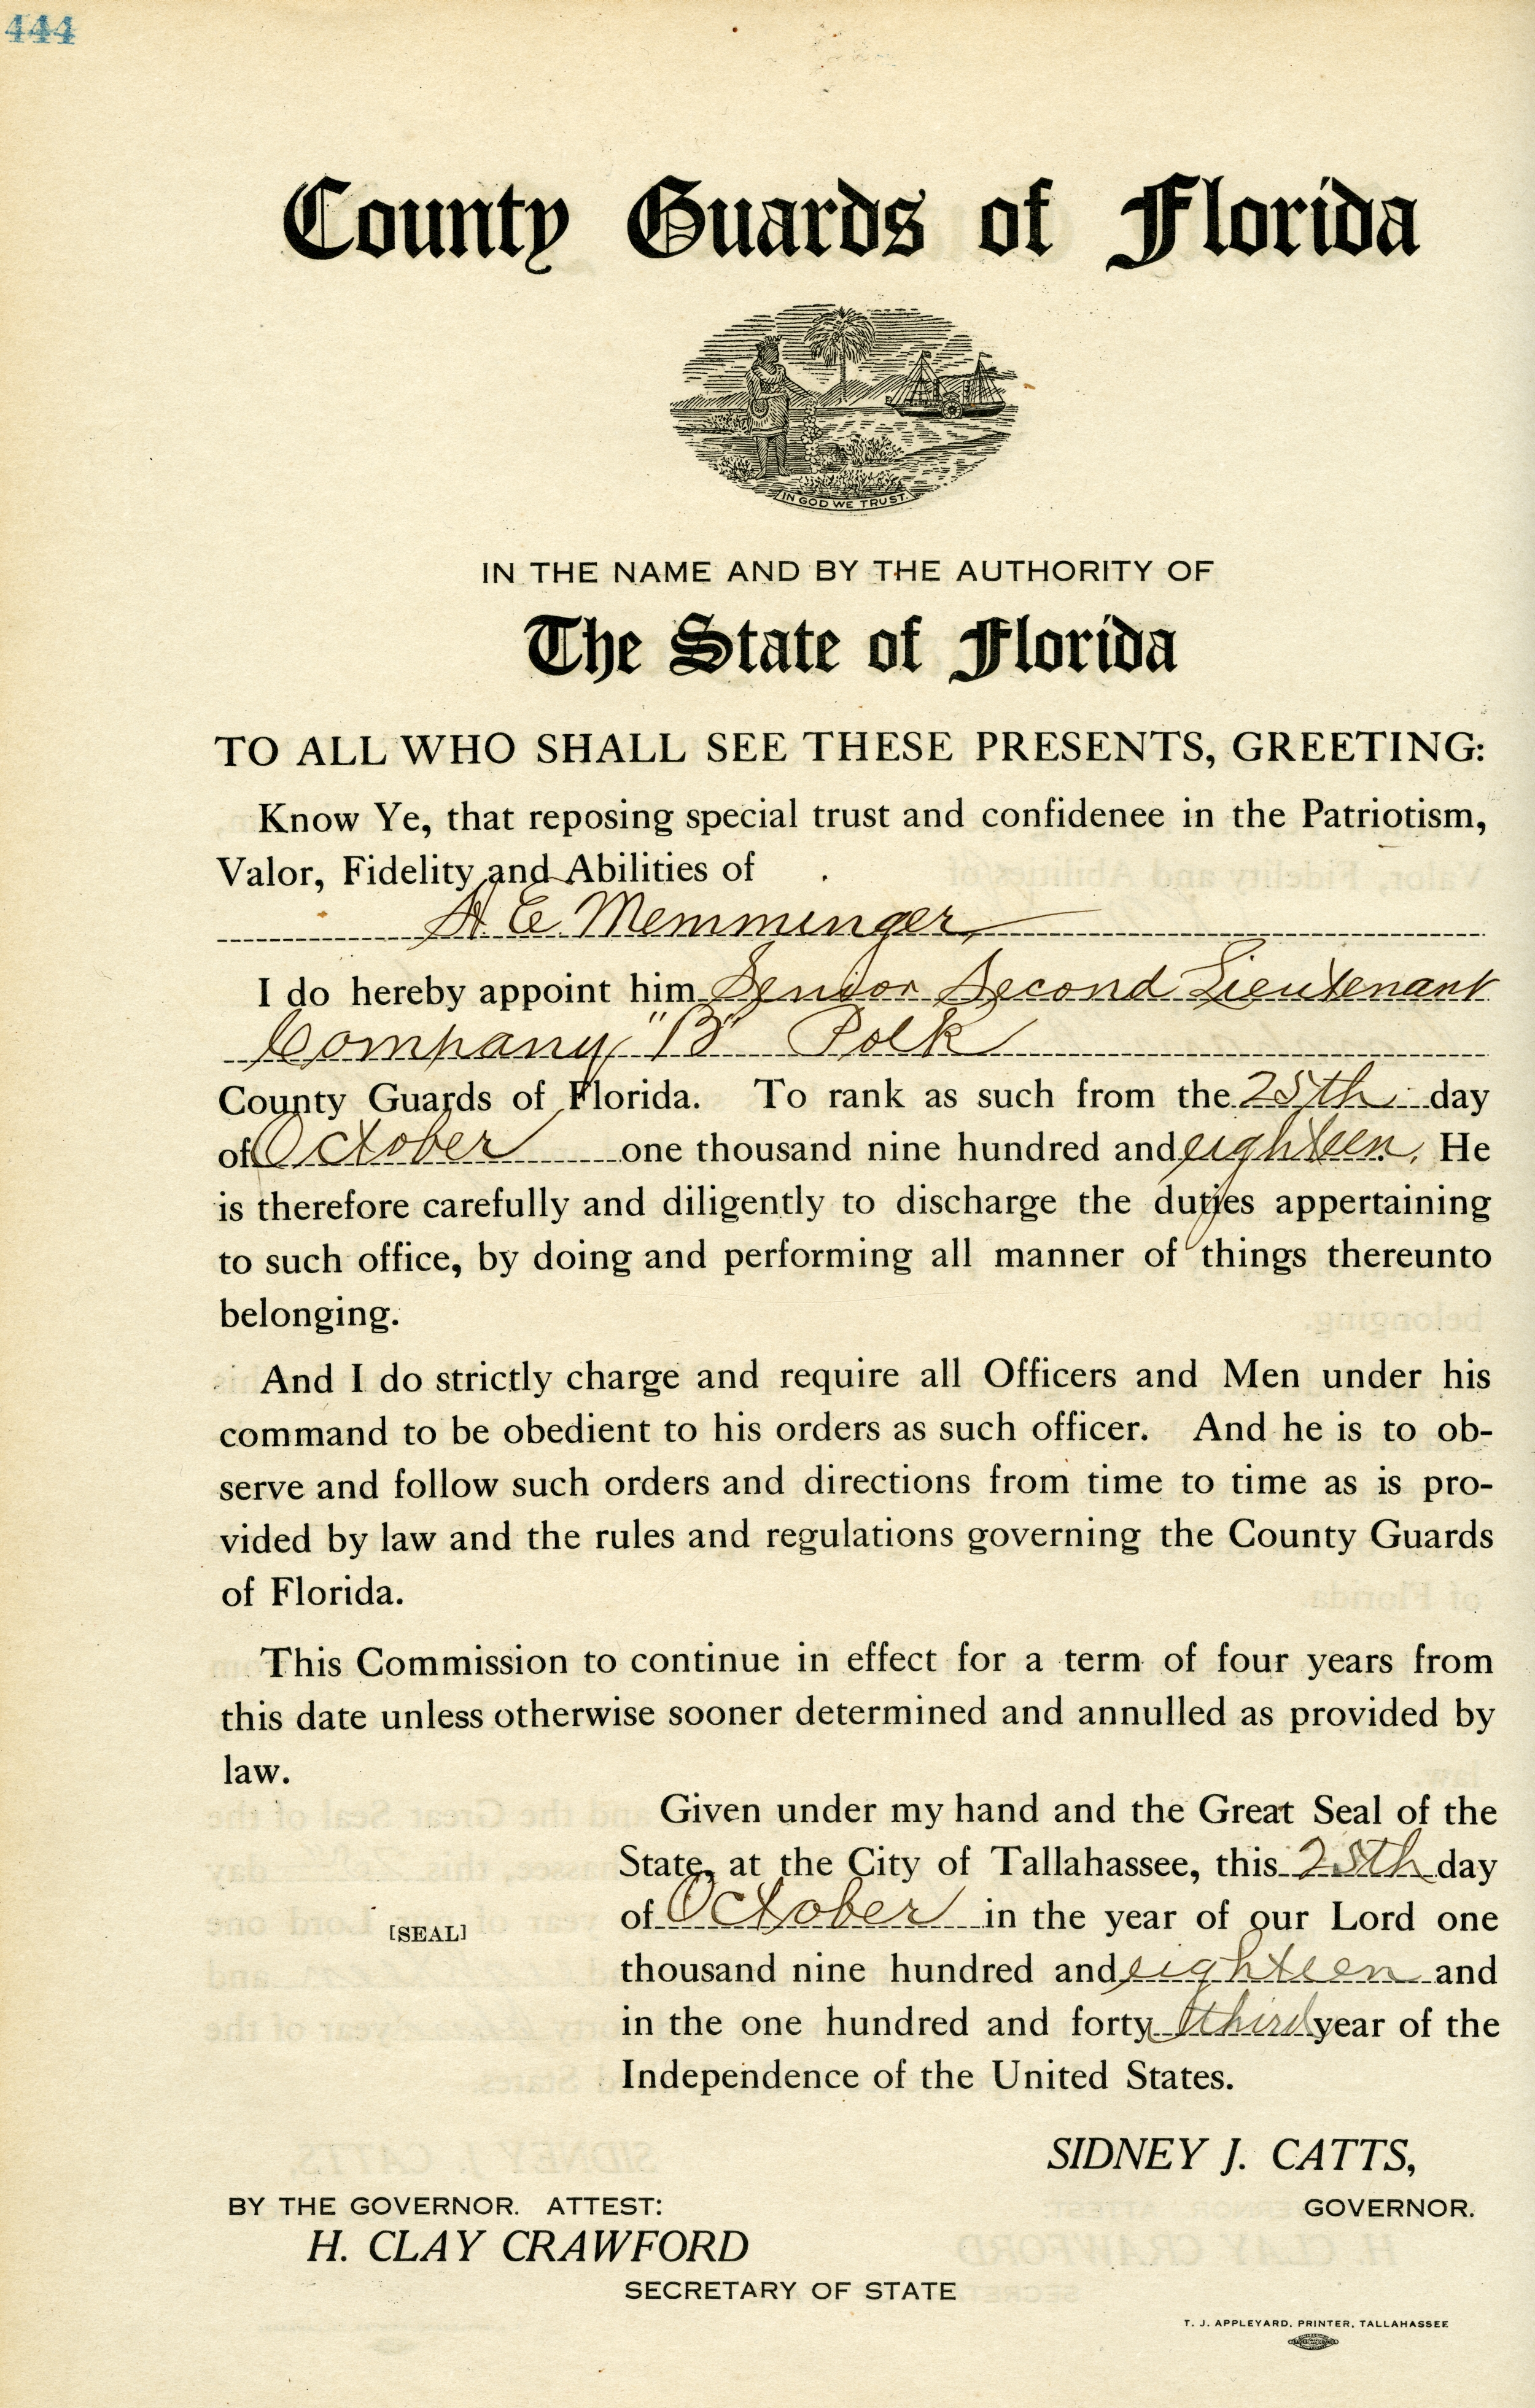 444
County Guards of Florida
IN GOD WE TRUST.
IN THE NAME AND BY THE AUTHORITY OF
The State of Florida
TO ALL WHO SHALL SEE THESE PRESENTS, GREETING:
Know Ye, that reposing special trust and confidenee in the Patriotism,
Valor, Fidelity and Abilities of
H. E. Memminger,
I do hereby appoint him Senior Second Lieutenant
Company "B" Polk
County Guards of Florida. To rank as such from the 25th day
of October one thousand nine hundred and eighteen. He
is therefore carefully and diligently to discharge the duties appertaining
to such office, by doing and performing all manner of things thereunto
belonging.
And I do strictly charge and require all Officers and Men under his
command to be obedient to his orders as such officer. And he is to ob-
serve and follow such orders and directions from time to time as is pro-
vided by law and the rules and regulations governing the County Guards
of Florida.
This Commission to continue in effect for a term of four years from
this date unless otherwise sooner determined and annulled as provided by
law.
Given under my hand and the Great Seal of the
State, at the City of Tallahassee, this 25th day
of October in the year of our Lord one
[SEAL]
thousand nine hundred and eighteen and
in the one hundred and forty third year of the
Independence of the United States.
SIDNEY J. CATTS,
BY THE GOVERNOR. ATTEST:
GOVERNOR.
H. CLAY CRAWFORD
SECRETARY OF STATE
T. J. APPLEYARD, PRINTER, TALLAHASSEE